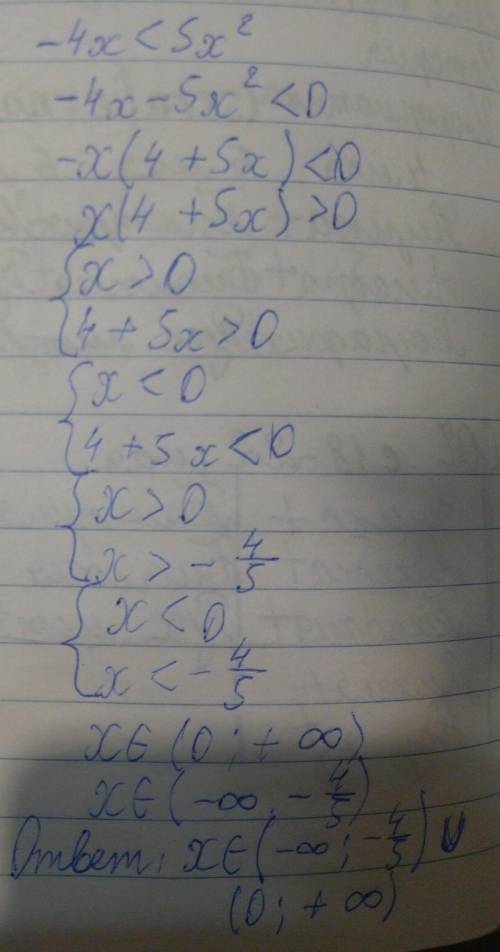 -4x < 5x²
-4x - 5x² < 0
-x(4 + 5x) < 0
x(4 + 5x) > 0
{x > 0
{4 + 5x > 0
{x < 0
{4 + 5x < 0
{x > 0
{x > - 4/5
{x < 0
{x < - 4/5
x ∈ (0 ; + ∞)
x ∈ (-∞ ; - 4/5)
Ответ: x ∈ (-∞ ; - 4/5) ∪
(0 ; + ∞)